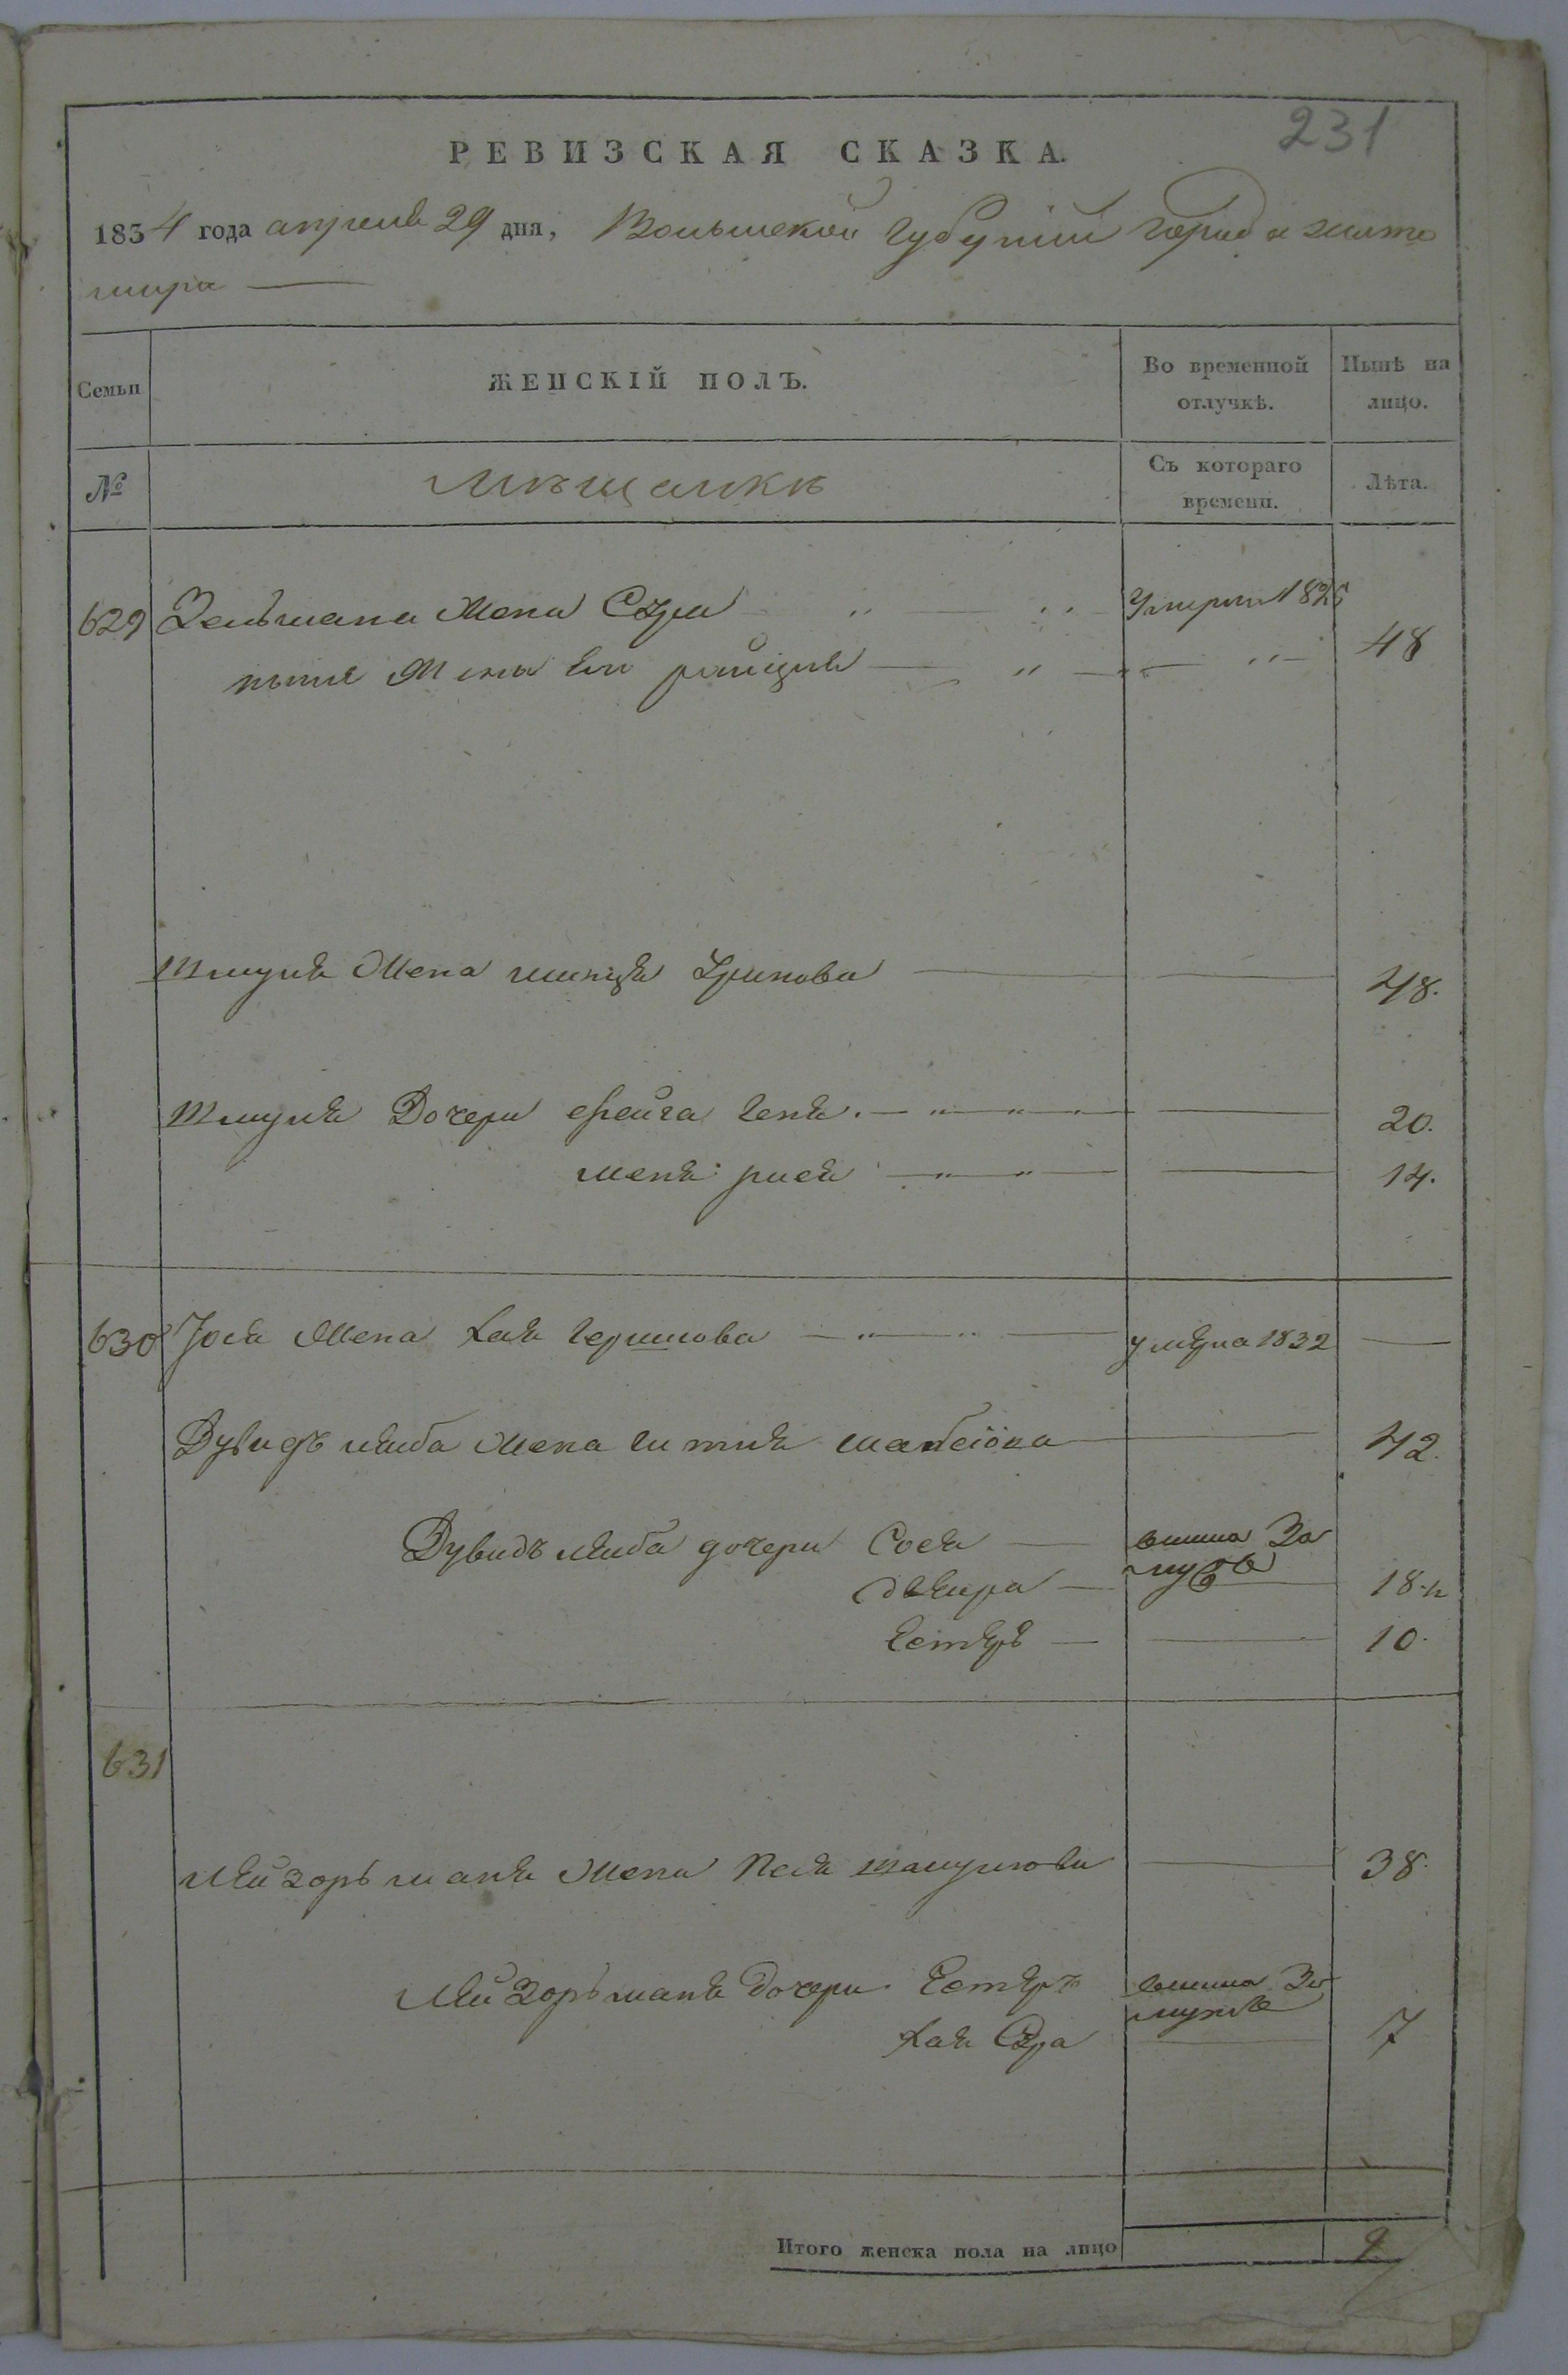 231
РЕВИЗСКАЯ СКАЗКА.
1834 года апреля 29 дня, Волынской Губернии города Жито
мира
Семьи ЖЕНСКІЙ ПОЛЪ. Во временной отлучкѣ. Нынѣ на лицо.
№ Мѣщанки Съ котораго времени. Лѣта.
629 Зельмана жена Сура
ныне жена его 48
Шмуля жена 48.
Шмуля Дочери Фейга Геня 20.
Меня Рися 14.
630 Іося жена Хая Гершкова умерла 1832
Дувидъ Лейба жена Гитля 42.
Дувидъ Лейба дочери Сося вышла За
мужъ
Двейра 18
Естеръ 10.
631
Лейзоръ Маня жена Песя Шмулиова 38.
Лейзоръ Маня Дочери Естеръ вышла За
мужъ
Хая Сура 7
Итого женска пола на лицо 9